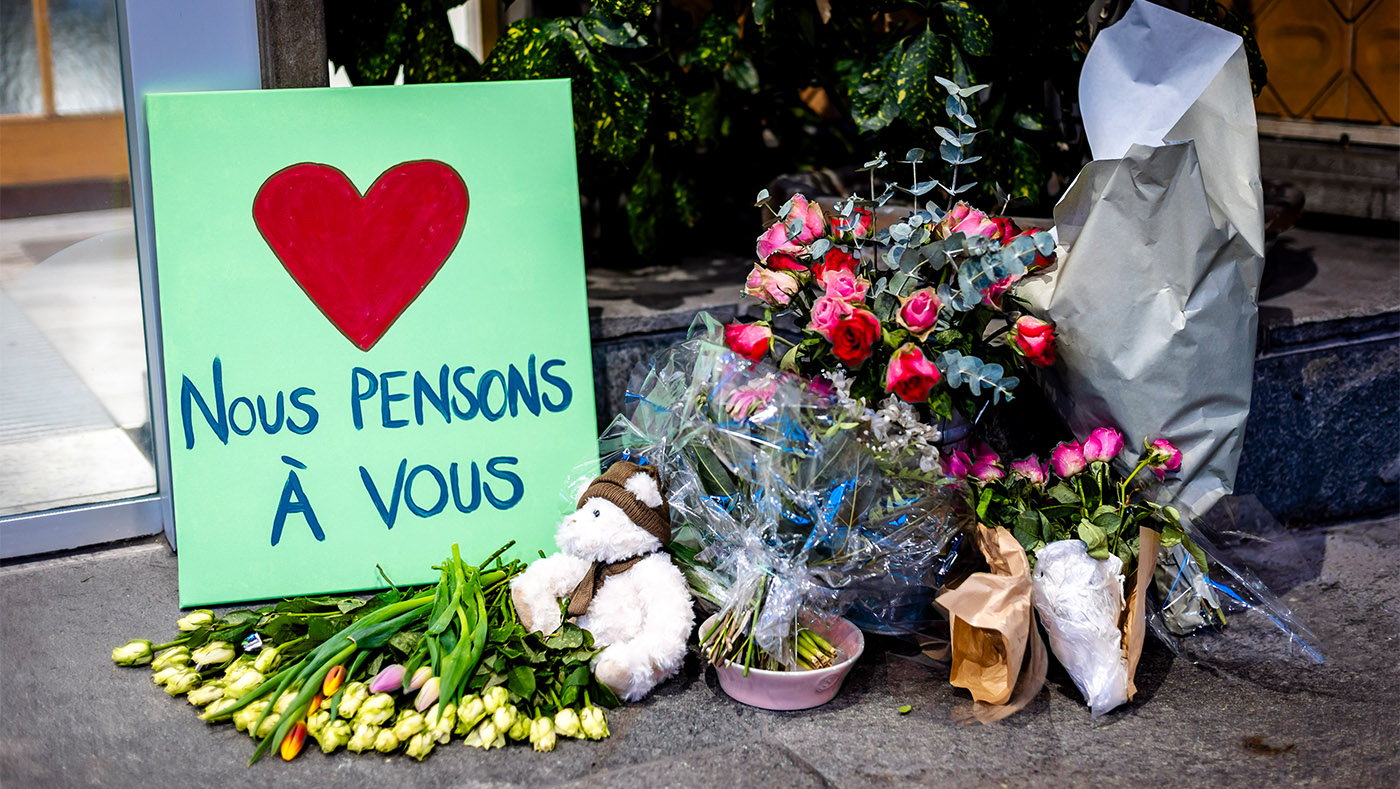 Nous PENSONS
À VOUS